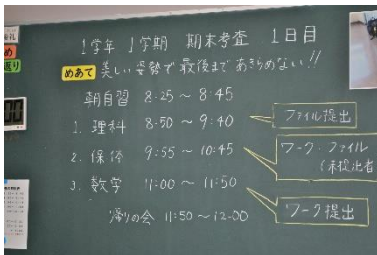 1学年 1学期 期末考査 1日目
めあて 美しい姿勢で最後まであきらめない!!
朝自習 8:25〜8:45
1. 理科 8:50〜9:40
ファイル提出
2. 保体 9:55〜10:45
ワーク・ファイル
(未提出者
3. 数学 11:00〜11:50
ワーク提出
帰りの会 11:50〜12:00
め
返り